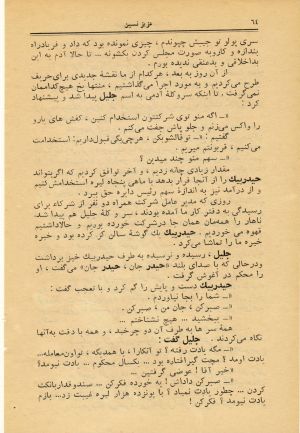 ۶۴
عزیز نسین
سری پولو تو جیبش چپوندم ، چیزی نمونده بود که داد و فریادراه
بندازه و کاروبه صورت مجلس کردن بکشونه ... تا حالا آدم به این
بداخلاقی و بدعنقی ندیده بودم .
از آن روز به بعد ، هرکدام از ما نقشهٔ جدیدی برای حریف
طرح می‌کردیم و به مورد اجرا می‌گذاشتیم ، منتها نخ هیچ‌کداممان
نمی‌گرفت ، تا اینکه سروکلهٔ آدمی به اسم جلیل پیدا شد و پیشنهاد
کرد :
«ــ اگه منو توی شرکتتون استخدام کنین ، کفش های یارو
را واکس می‌زنم و جلو پاش جفت می‌کنم .
گفتیم : «ــ توفالشوبکن ، هرچی‌بگی‌قبول‌داریم؛ استخدامت
می‌کنیم ، قربونتم میریم .
«ــ سهم منو چند میدین ؟
مقدار زیادی چانه زدیم ، و آخر توافق کردیم که اگربتواند
حیدربیك را از آنجا فرار بدهد با ماهی پنجاه لیره استخدامش کنیم
و از درآمد نیز به اندازهٔ سهم رئیس دایره حق ببرد .
روزی که مدیر عامل شرکت همراه دو نفر از شرکاء برای
رسیدگی به دفتر کار ما آمده بودند ، سر و کلهٔ جلیل هم پیدا شد.
ناهار را همه‌مان همان جا درشرکت خورده بودیم و حالاداشتیم
قهوه می خوردیم . حیدربیك یك گوشهٔ سالن کز کرده بود و خیره
خیره ما را تماشا می‌کرد .
جلیل ، رسیده و نرسیده به طرف حیدربیك خیز برداشت
ودرحالی که با صدای بلند «حیدر جان ، حیدر جان» می‌گفت ، او
را محکم در آغوش گرفت .
حیدربیك دست و پایش را گم کرد و با تعجب گفت :
«ــ شما را بجا نیاوردم .
«ــ صبرکن ، جان من ، صبرکن .
«ــ ببخشید ... هیچ نشناختم .
همهٔ سر ها به طرف آن دو چرخید ، و همه با دقت به‌آنها
نگاه می‌کردند . جلیل گفت :
«ــ مگه یادت رفته ؟ تو آنکارا ، با همدیگه ، تواون‌معامله...
یادت اومد ؟ مچت گیرافتاده بود ... نکسال محکوم ... یادت نیومد؟
«خیر آقا ! عوضی گرفتین ...
«ــ صبرکن داداش ! یه خورده فکرکن ... صندوقداربانک
کردن ... چطور یادت نمیاد ؟ با پونزده هزار لیره غیبت زد... بازم
یادت نیومد ؟ فکرکن !